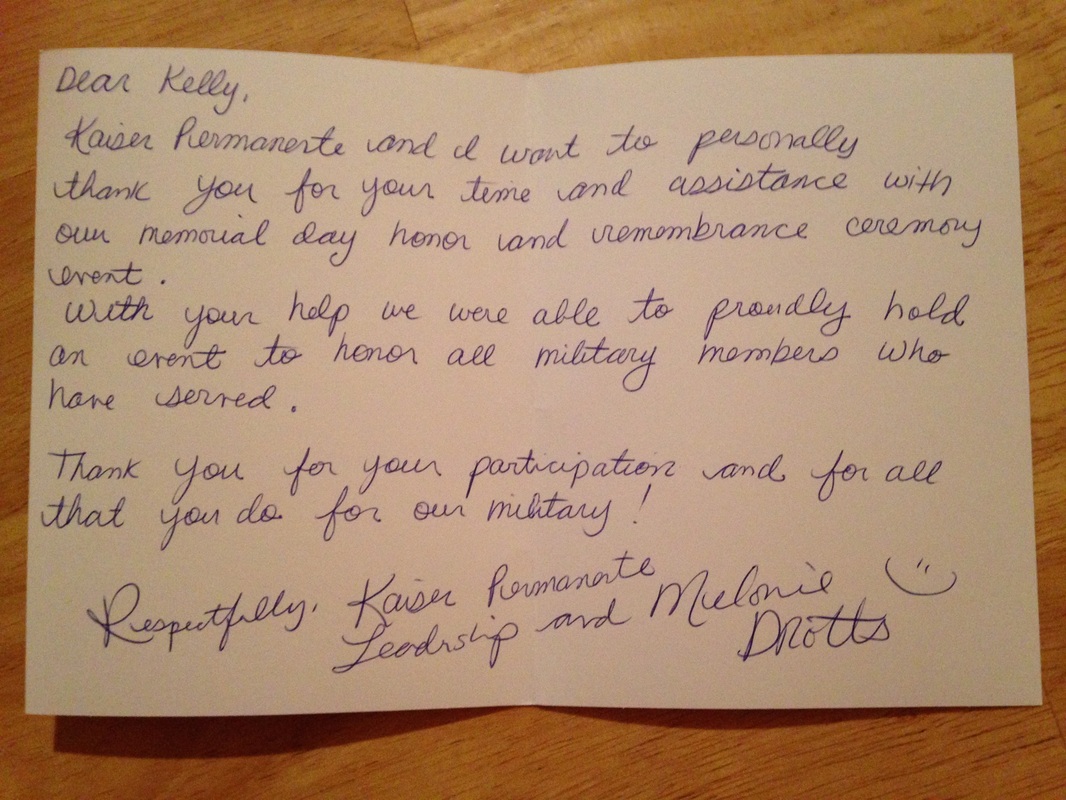 Dear Kelly,
Kaiser Permanente and I want to personally
thank you for your time and assistance with
our memorial day honor and remembrance ceremony
event.
With your help we were able to proudly hold
an event to honor all military members who
have served.
Thank you for your participation and for all
that you do for our military!
Respectfully, Kaiser Permanente
Leadership and Melonie
Drotts